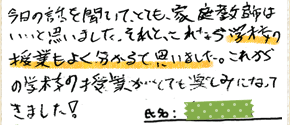 今日の話を聞いて、とても、家庭教師は
いいと思いました。それと、これなら学校の
授業もよく分かると思いました。これから
の学校の授業がとても楽しみになって
きました!
氏名: